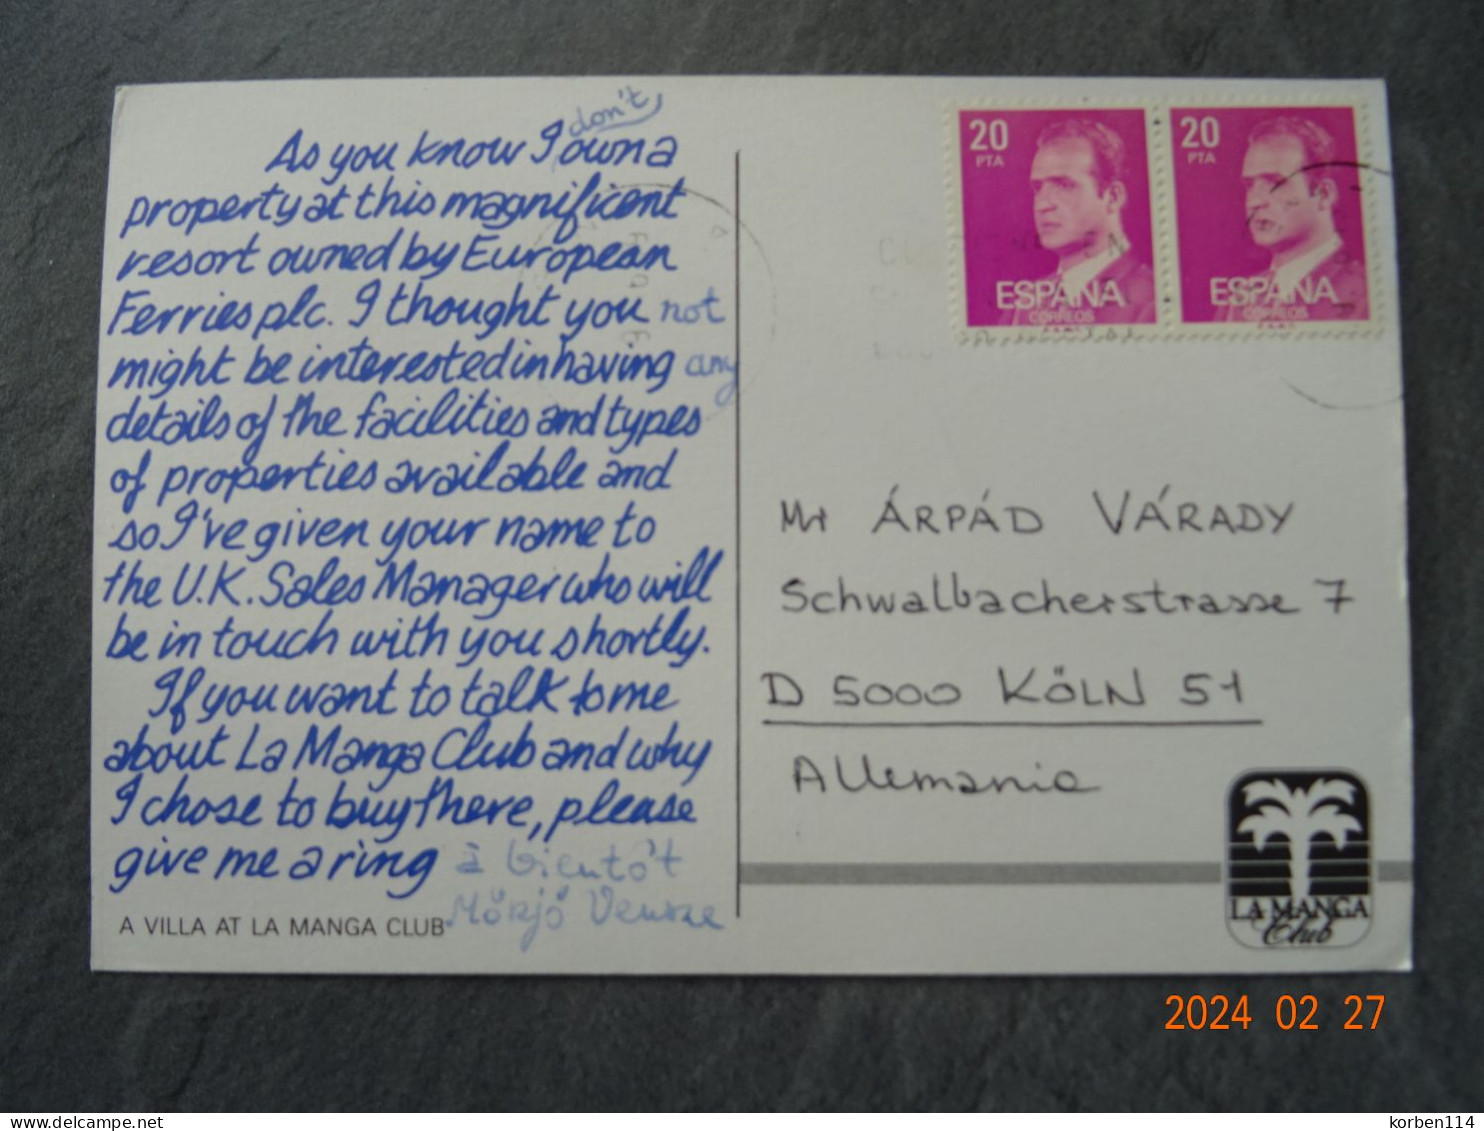 don't
As you know I own a
property at this magnificent
resort owned by European
Ferries plc. I thought you not
might be interested in having any
details of the facilities and types
of properties available and
so I've given your name to
the U.K. Sales Manager who will
be in touch with you shortly.
If you want to talk to me
about La Manga Club and why
I chose to buy there, please
give me a ring à bientôt
A VILLA AT LA MANGA CLUB
20
PTA
ESPAÑA
CORREOS
20
PTA
ESPAÑA
CORREOS
Mr ÁRPÁD VÁRADY
Schwalbacherstrasse 7
D 5000 KÖLN 51
Allemania
LA MANGA
Club
2024 02 27
delcampe.net
korben114